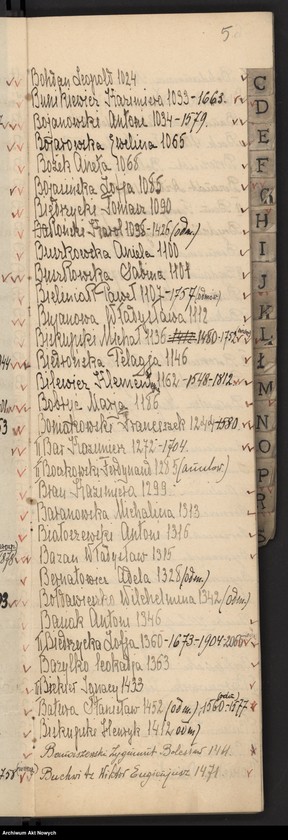 5
Bohdan Leopold 1024
Buńkiewicz Kazimiera 1033-1663.
Bojanowski Antoni 1034-1579.
Bojarowska Ewelina 1065
Bożek Aneta 1068
Zofja 1085
Biedrzycki Tomasz 1090
Karol 1098-1426 (odm.)
Buszkowska Aniela 1100
Buszkowska Sabina 1101
Bieliniak Paweł 1107-1757
Bujanowa Władysława 1112
Biskupski Michał 1136 1480-
Biedrońcka Pelagja 1146
Bilewicz Klemens 1162-1548-1812
Bobryc Marja 1186
Bomakowski Franciszek 1244-1580
Bar Kazimierz 1272-1704.
Boakowski Ferdynand 1285 (anulow.)
Bran Kazimiera 1299
Baranowska Michalina 1313
Białoszewski Antoni 1316
Bazan Władysław 1315
Bernatowicz Adela 1328 (odm.)
Wilchelmina 1342 (odm.)
Banak Antoni 1346
Biedrzycka Zofja 1360-1673-1904-
Bazylko Leokadja 1363
Ignacy 1433
Batura Stanisław 1452 (odm.), 1560-1577
Biskupski Henryk 1412 odm)
Zygmunt Bolesław 144.
Wiktor Eugienjusz 1471
C
D
E
F
G
H
I
J
K
L
Ł
M
N
O
P
R
S
Archiwum Akt Nowych